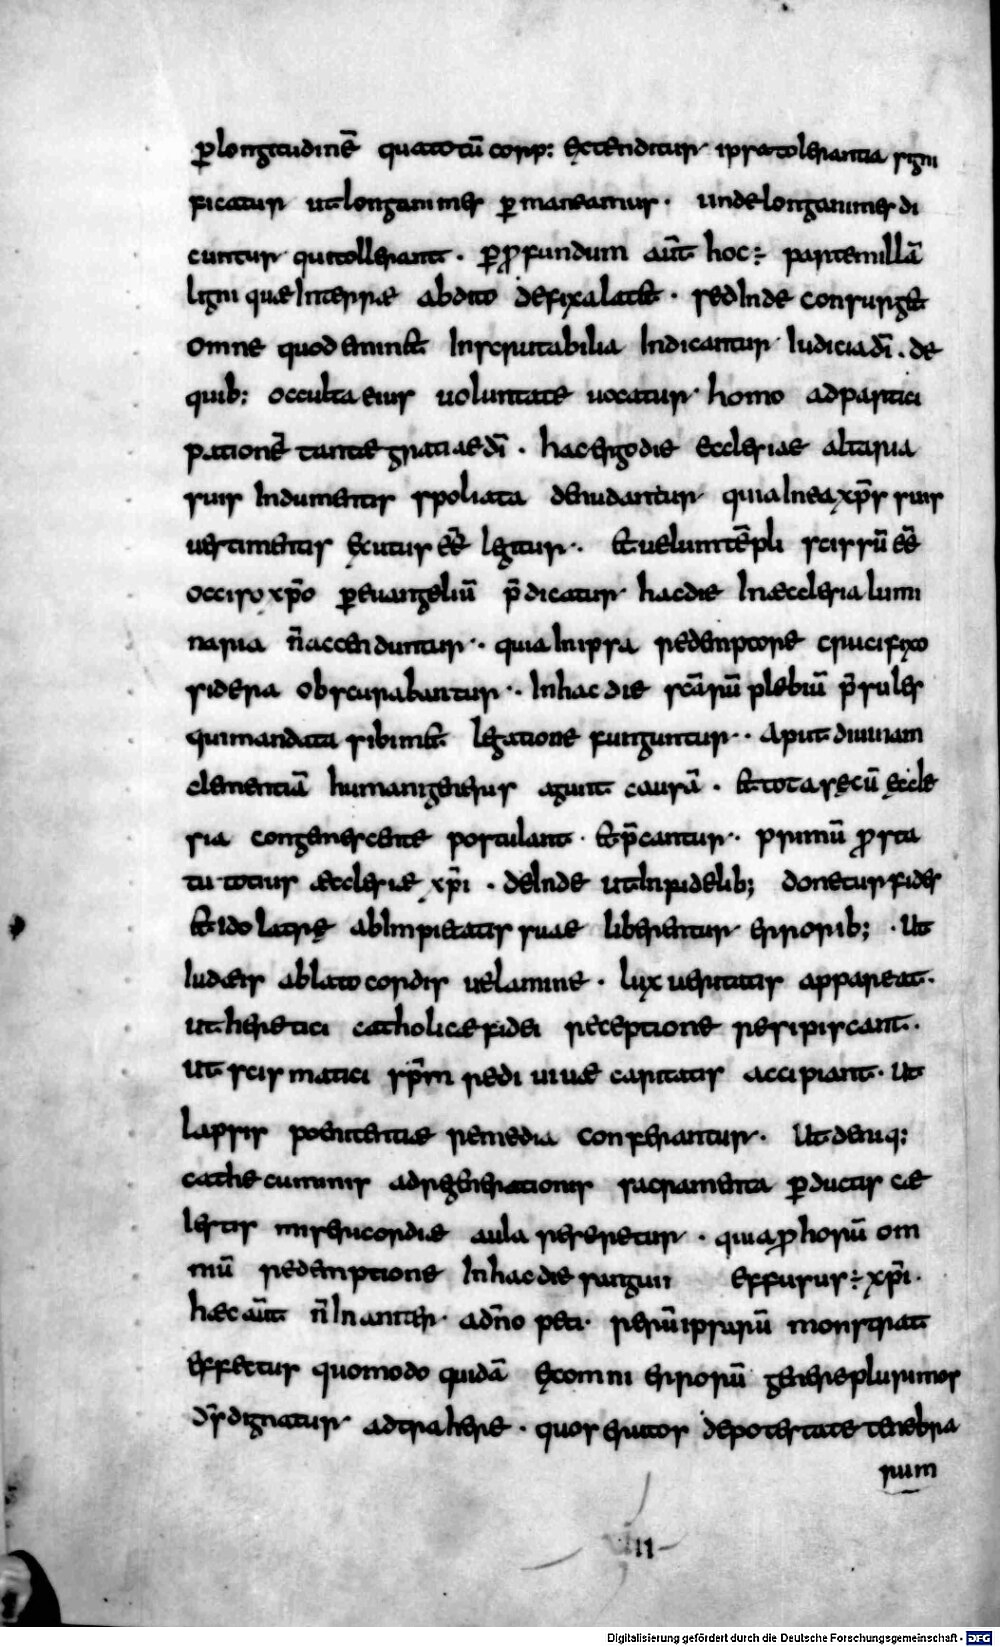 p̲longitudinē quatotū corp: ęctenditur ipsa tolerantia signi
ficatur ut longanimes p̲maneamus · unde longanimes di
cuntur qui tollerant · p̲ p̲fundum aūt hoc ÷ partem illā
ligni quæ In terræ abdito defixa latet · sed Inde consurget
omne quod eminet Inscrutabilia Indicantur Iudicia dī · de
quib: occulta eius uoluntate uocatur homo ad partici
pationē tantæ gratiae dī · hac ergo die ecclesiae altaria
suis Indumentis spoliata denudantur quia In ea xp̄s suis
uestimentis ęcutus eē̄ legitur · et uelum tēpli scissū eē̄
occiso xp̄o p̲ euangeliū p̄dicatur hac die In æcclesia lumi
naria n̄ accenduntur · quia In ipsa redemptore crucifixo
sidera obscurabantur · In hac die scārū plebiū p̄sules
qui mandata sibimet legatione funguntur · Aput diuinam
clementiā humani generis agunt causā · et tota secū ęccle
sia congemescente postulant · et p̄cantur · primū p̲ sta
tu totius æcclesiæ xp̄i · deInde ut Infidelib; donetur fides
et idolatrię ab Impietatis suae liberentur errorib; · Ut
Iudæis ablato cordis uelamine · lux ueritatis appareat ·
ut heretici catholicæ fidei receptione resipiscant ·
ut scismatici sp̄m redi uiuæ caritatis accipiant · Ut
lapsis poenitentiæ remedia conferantur · Ut deniq:
cathecuminis ad regenerationis sacramenta p̲ductis cæ
lestis misericordiæ aula reseretur · quia p̲ horū om
niū redemptione In hac die sanguis effusus ÷ xp̄i ·
hæc aūt n̄ Inaniter a dn̄o peti · rerū ipsarū monstrat
effectus quomodo quidā ęc omni errorū genere plurimos
dn̄s dignatur adtrahere · quos erutos de potestate tenebra
rum
II
Digitalisierung gefördert durch die Deutsche Forschungsgemeinschaft - DFG